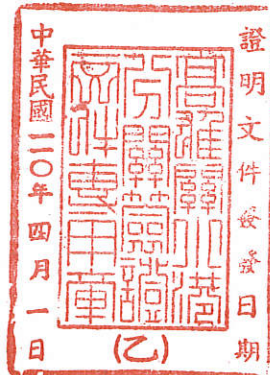 證明文件簽發日期
高雄關小港
分關簽證
文件專用章
(乙)
中華民國一一〇年四月一日